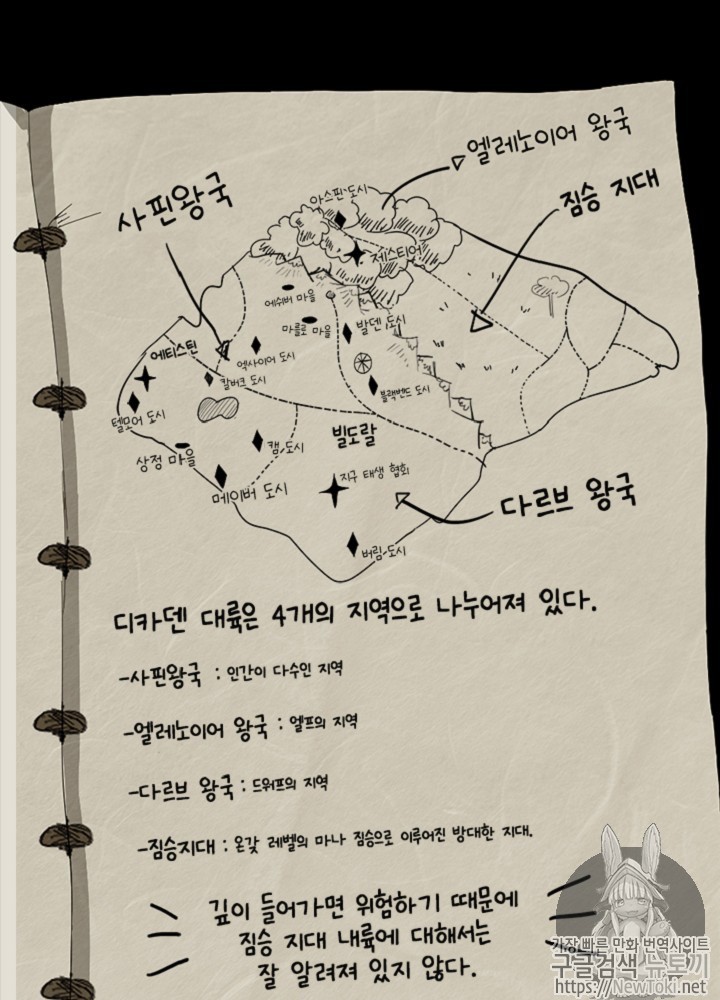 엘레노이어 왕국
사핀왕국
짐승 지대
아스핀 도시
제스티어
에쉬버 마을
마를로 마을
발덴 도시
에티스틴
엑사이어 도시
칼버크 도시
블랙벤드 도시
텔모어 도시
빌도랄
캠 도시
상정 마을
지구 태생 협회
메이버 도시
다르브 왕국
버림 도시
디카덴 대륙은 4개의 지역으로 나누어져 있다.
-사핀왕국 : 인간이 다수인 지역
-엘레노이어 왕국 : 엘프의 지역
-다르브 왕국 : 드워프의 지역
-짐승지대 : 온갖 레벨의 마나 짐승으로 이루어진 방대한 지대.
깊이 들어가면 위험하기 때문에
짐승 지대 내륙에 대해서는
잘 알려져 있지 않다.
가장 빠른 만화 번역사이트
구글검색 뉴토끼
https://NewToki.net